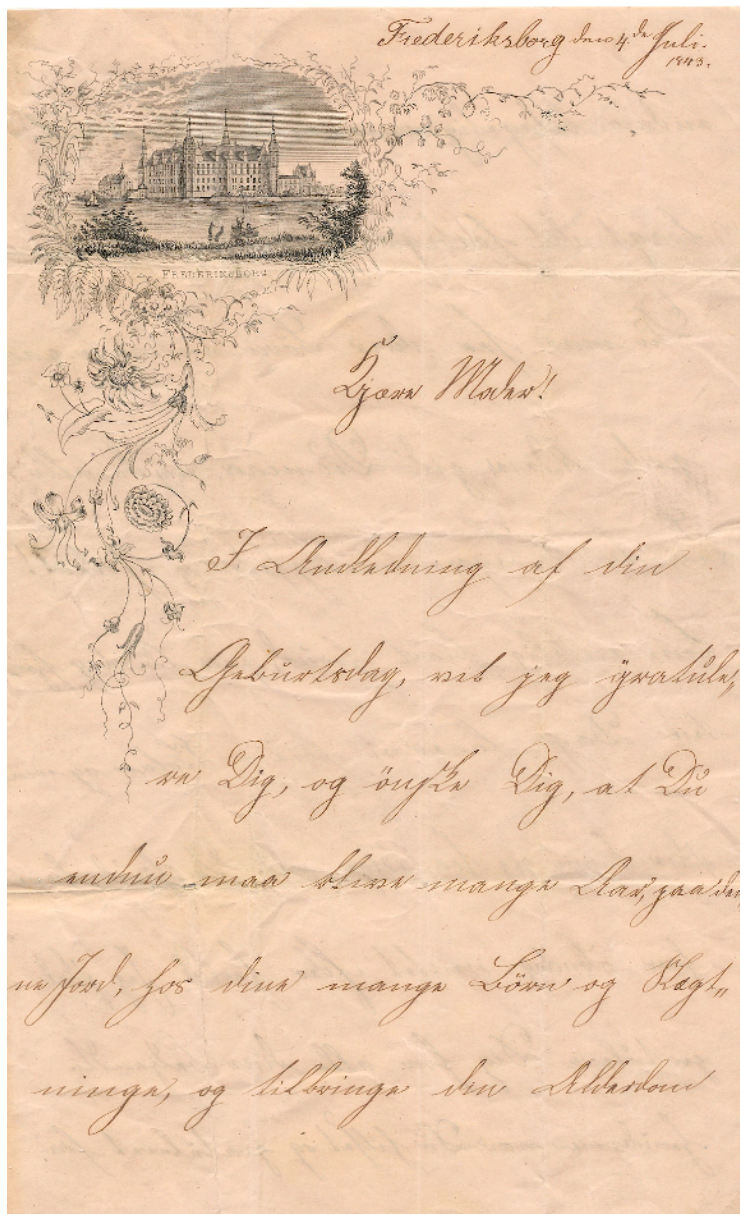 Frederiksborg den 4de Juli.
1883.
FREDERIKSBORG
Kjære Moder!
I Andledning af din
Geburtsdag, vel jeg gratule„
re Dig, og önske Dig, at Du
endnu maa blive mange Aar, paa den„
ne Jord, hos dine mange Börn og Slægt„
ninge, og tilbringe din Alderdom